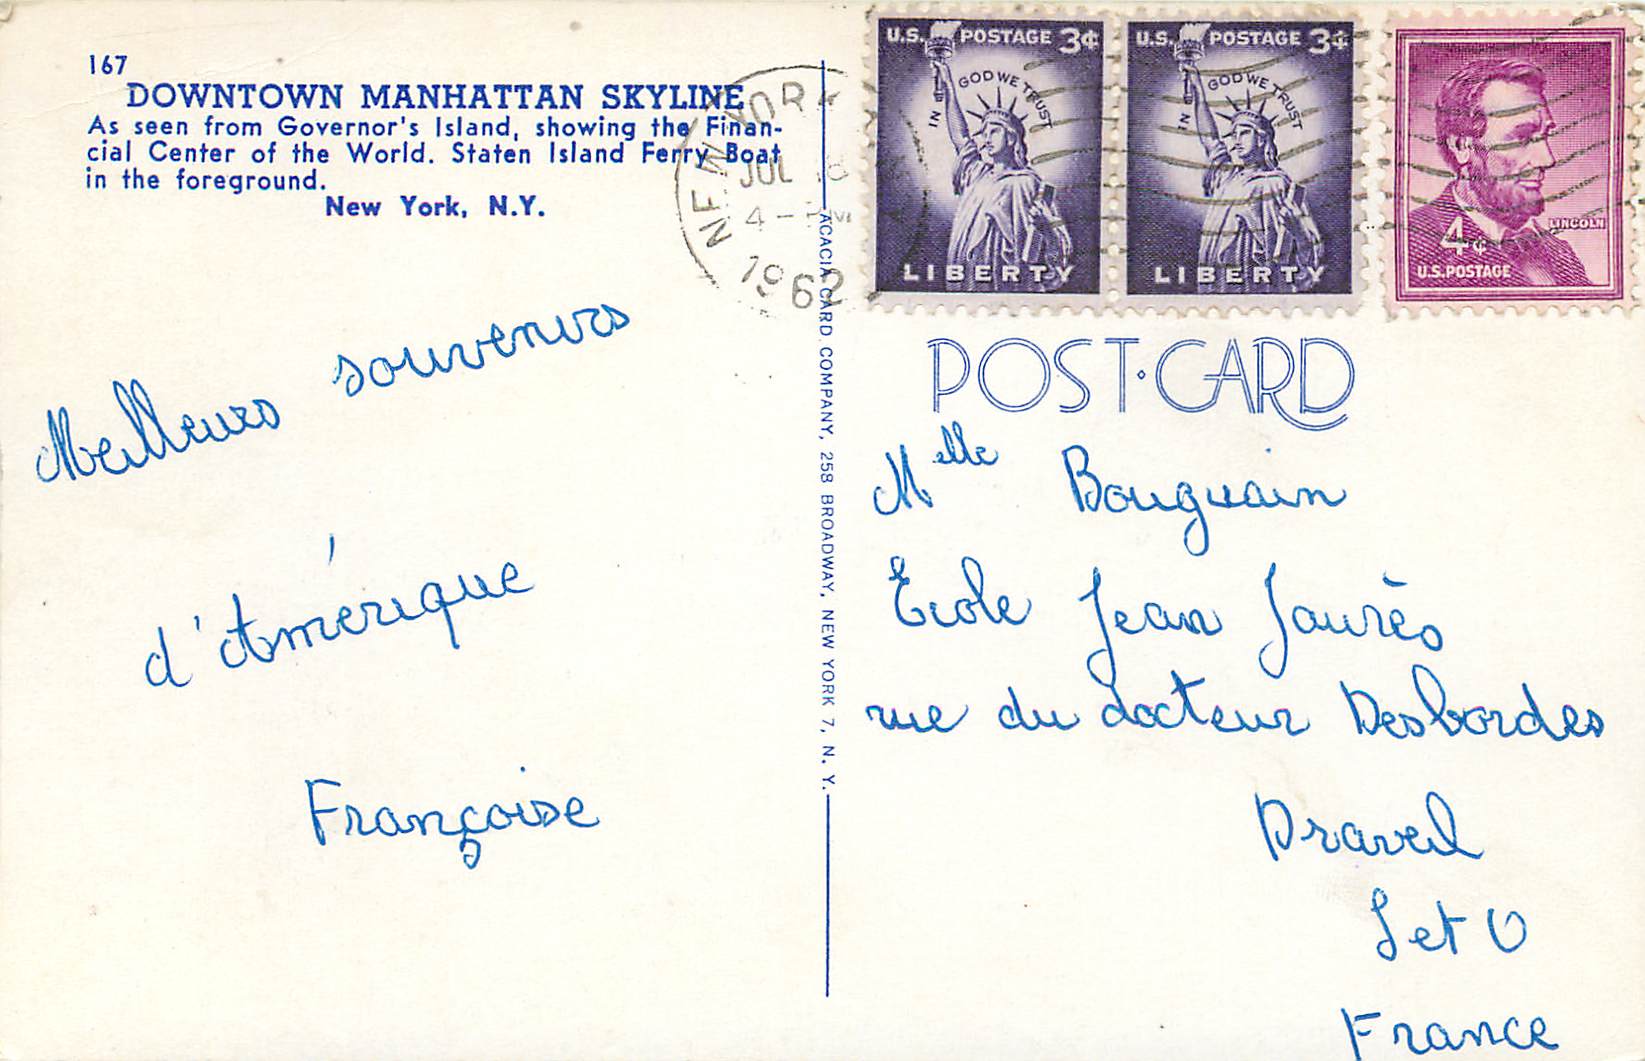 167
DOWNTOWN MANHATTAN SKYLINE
As seen from Governor's Island, showing the Finan-
cial Center of the World. Staten Island Ferry Boat
in the foreground.
New York, N.Y.
Meilleurs souvenirs
d'Amérique
Françoise
ACACIA CARD COMPANY, 258 BROADWAY, NEW YORK 7, N. Y.
NEW YORK
JUL 18
4 - PM
1962
U.S. POSTAGE 3¢
IN GOD WE TRUST
LIBERTY
U.S. POSTAGE 3¢
IN GOD WE TRUST
LIBERTY
LINCOLN
4¢
U.S. POSTAGE
POST·CARD
Melle Bouguain
École Jean Jaurès
rue du docteur Desbordes
Draveil
S et O
France